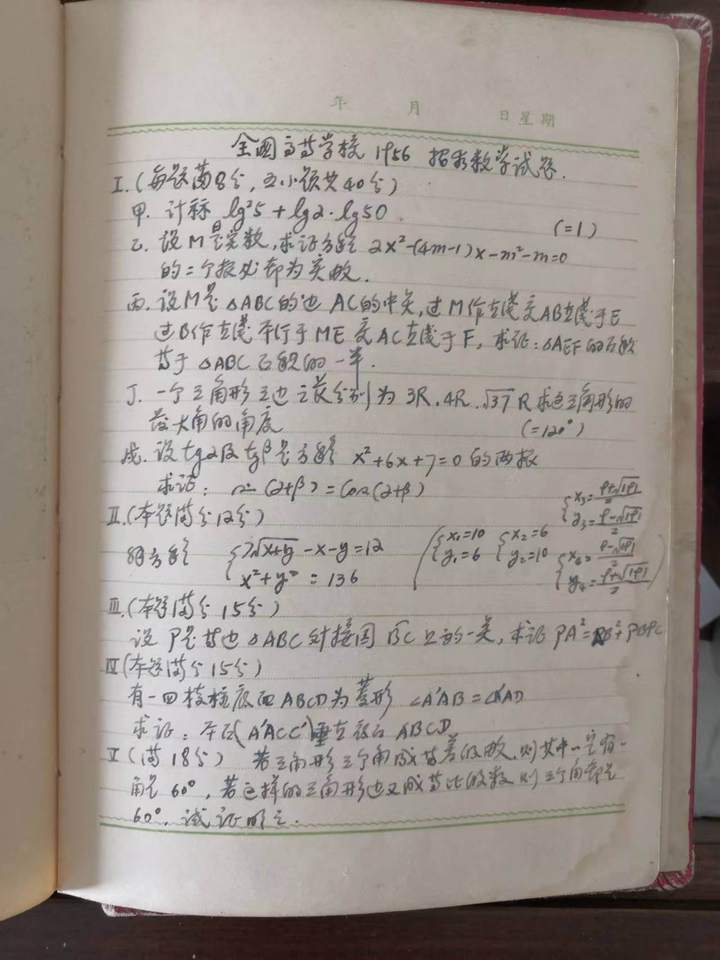 年 月 日 星期
全国高等学校 1956 招考数学试题.
I.(每题满8分,五小题共40分)
甲. 计称 lg²5 + lg2·lg50 (=1)
乙. 设M是实数,求证方程 2x²-(4m-1)x-m²-m=0
的二个根必都为实数.
丙. 设M是△ABC的边AC的中点,过M作直线交AB直线于E
过B作直线平行于ME交AC直线于F, 求证:△AEF的面积
等于△ABC面积的一半.
丁. 一个三角形三边之长分别为 3R, 4R, √37 R 求这三角形的
最大角的角度 (=120°)
戊. 设tgα及tgβ是方程 x²+6x+7=0 的两根
求证: sin(α+β)=cos(α+β)
II.(本题满分12分)
解方程 { √x+y -x-y=12 { x₁=10 { x₂=6
x²+y² = 136 y₁=6 y₂=10
III.(本题满分15分)
设P是等边△ABC外接圆 BC上的一点,求证 PA²= +PB·PC
IV(本题满分15分)
有一四棱柱底面ABCD为菱形 ∠A'AB=∠A'AD
求证:平面(A'ACC')垂直底面ABCD
V(满18分) 若三角形三个角成等差级数,则其中一定有一
角是60°,若这样的三角形边又成等比级数则三个角都是
60°,试证明之.